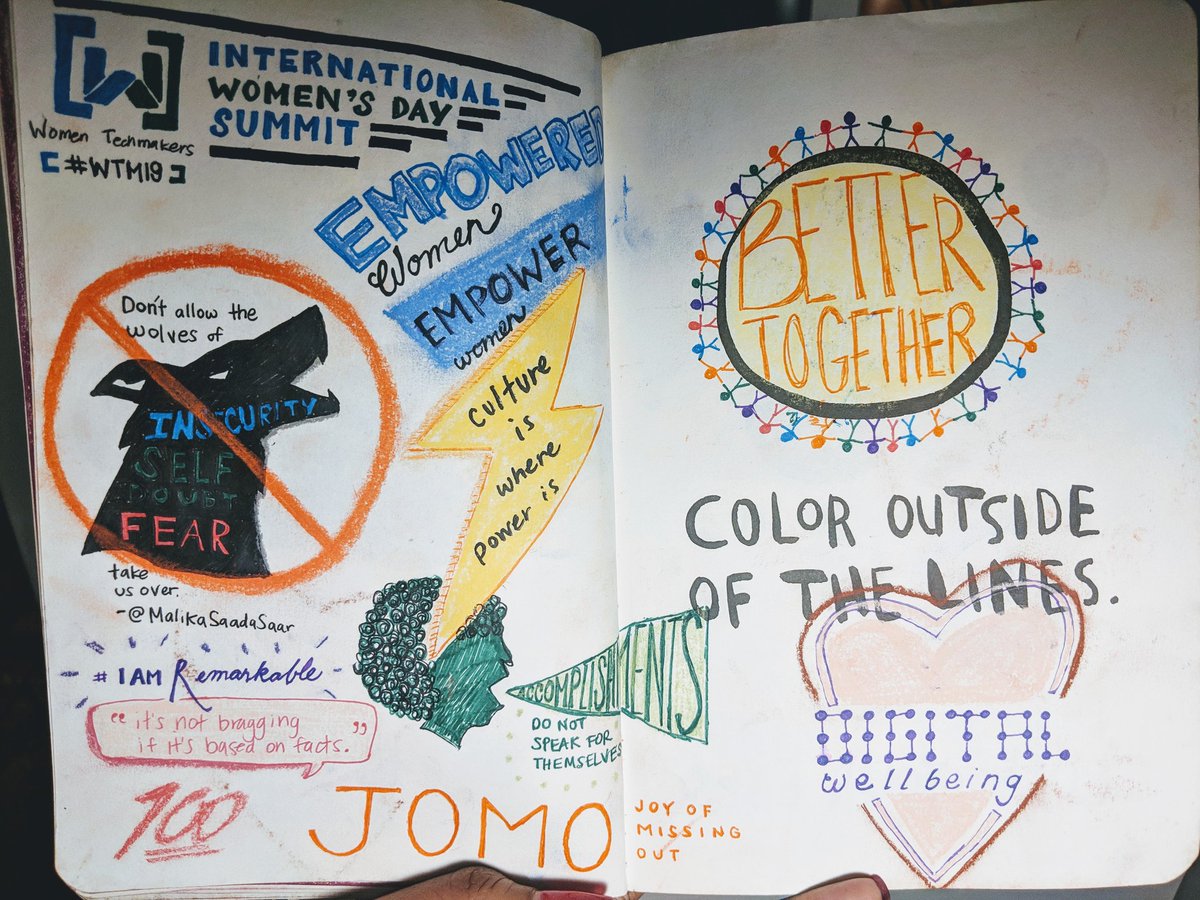 W
Women Techmakers
[#WTM19]
INTERNATIONAL
WOMEN'S DAY
SUMMIT
EMPOWERED
Women
EMPOWER
women
Don't allow the
wolves of
INSECURITY
SELF
DOUBT
FEAR
take
us over.
-@MalikaSaadaSaar
culture
is
where
power is
#IAM Remarkable
"it's not bragging
if it's based on facts."
100
ACCOMPLISHMENTS
DO NOT
SPEAK FOR
THEMSELVES
JOMO
JOY OF
MISSING
OUT
BETTER
TOGETHER
COLOR OUTSIDE
OF THE LINES.
DIGITAL
wellbeing